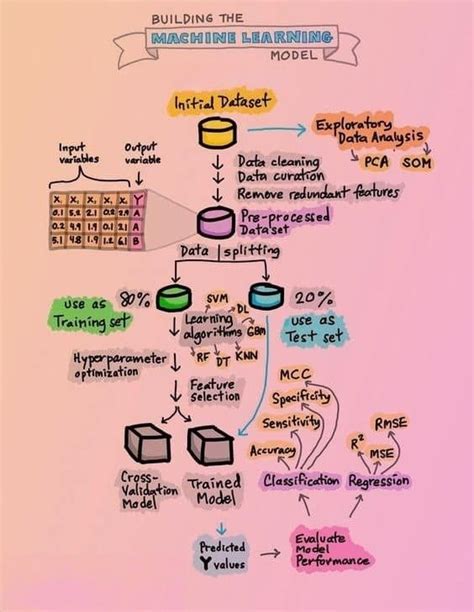 BUILDING THE
MACHINE LEARNING
MODEL
Initial Dataset
Exploratory
Data Analysis
PCA SOM
Input
variables
Output
variable
Data cleaning
Data curation
Remove redundant features
X, X, X, X, X, Y
0.1 5.2 2.1 0.2 2.9 A
0.2 4.9 1.9 0.1 2.1 A
5.1 4.8 1.9 1.2 6.1 B
Pre-processed
Dataset
Data splitting
80%
20%
use as
Training set
use as
Test set
SVM
DL
Learning
algorithms
GBM
RF DT KNN
Hyperparameter
optimization
Feature
selection
MCC
Specificity
Sensitivity
Accuracy
RMSE
R²
MSE
Cross-
Validation
Model
Trained
Model
Classification
Regression
Predicted
Y values
Evaluate
Model
Performance